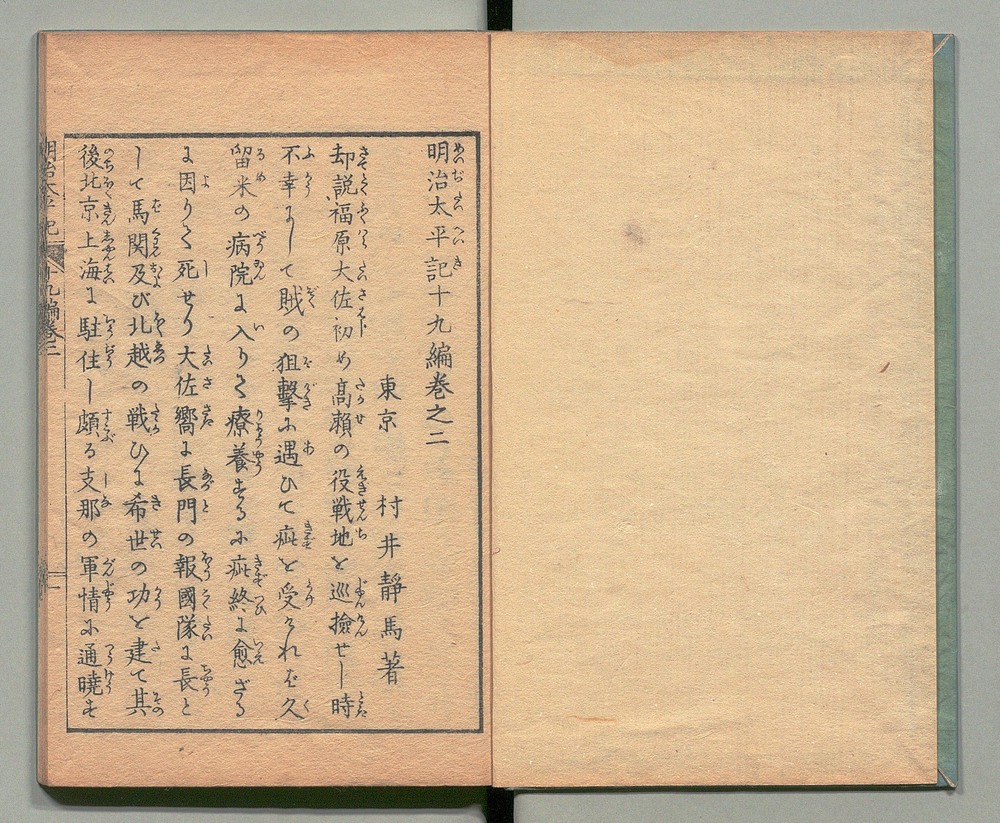 明治太平記十九編巻之二
東京 村井静馬著
却説福原大佐初め高瀬の役戦地を巡撿せし時
不幸にして賊の狙撃に遇ひて疵を受られバ久
留米の病院に入りて療養するに疵終に愈ざる
に因りて死せり大佐嚮に長門の報國隊に長と
して馬関及び北越の戦ひに希世の功を建て其
後北京上海に駐住し頗る支那の軍情に通暁す
明治太平記 十九編巻二